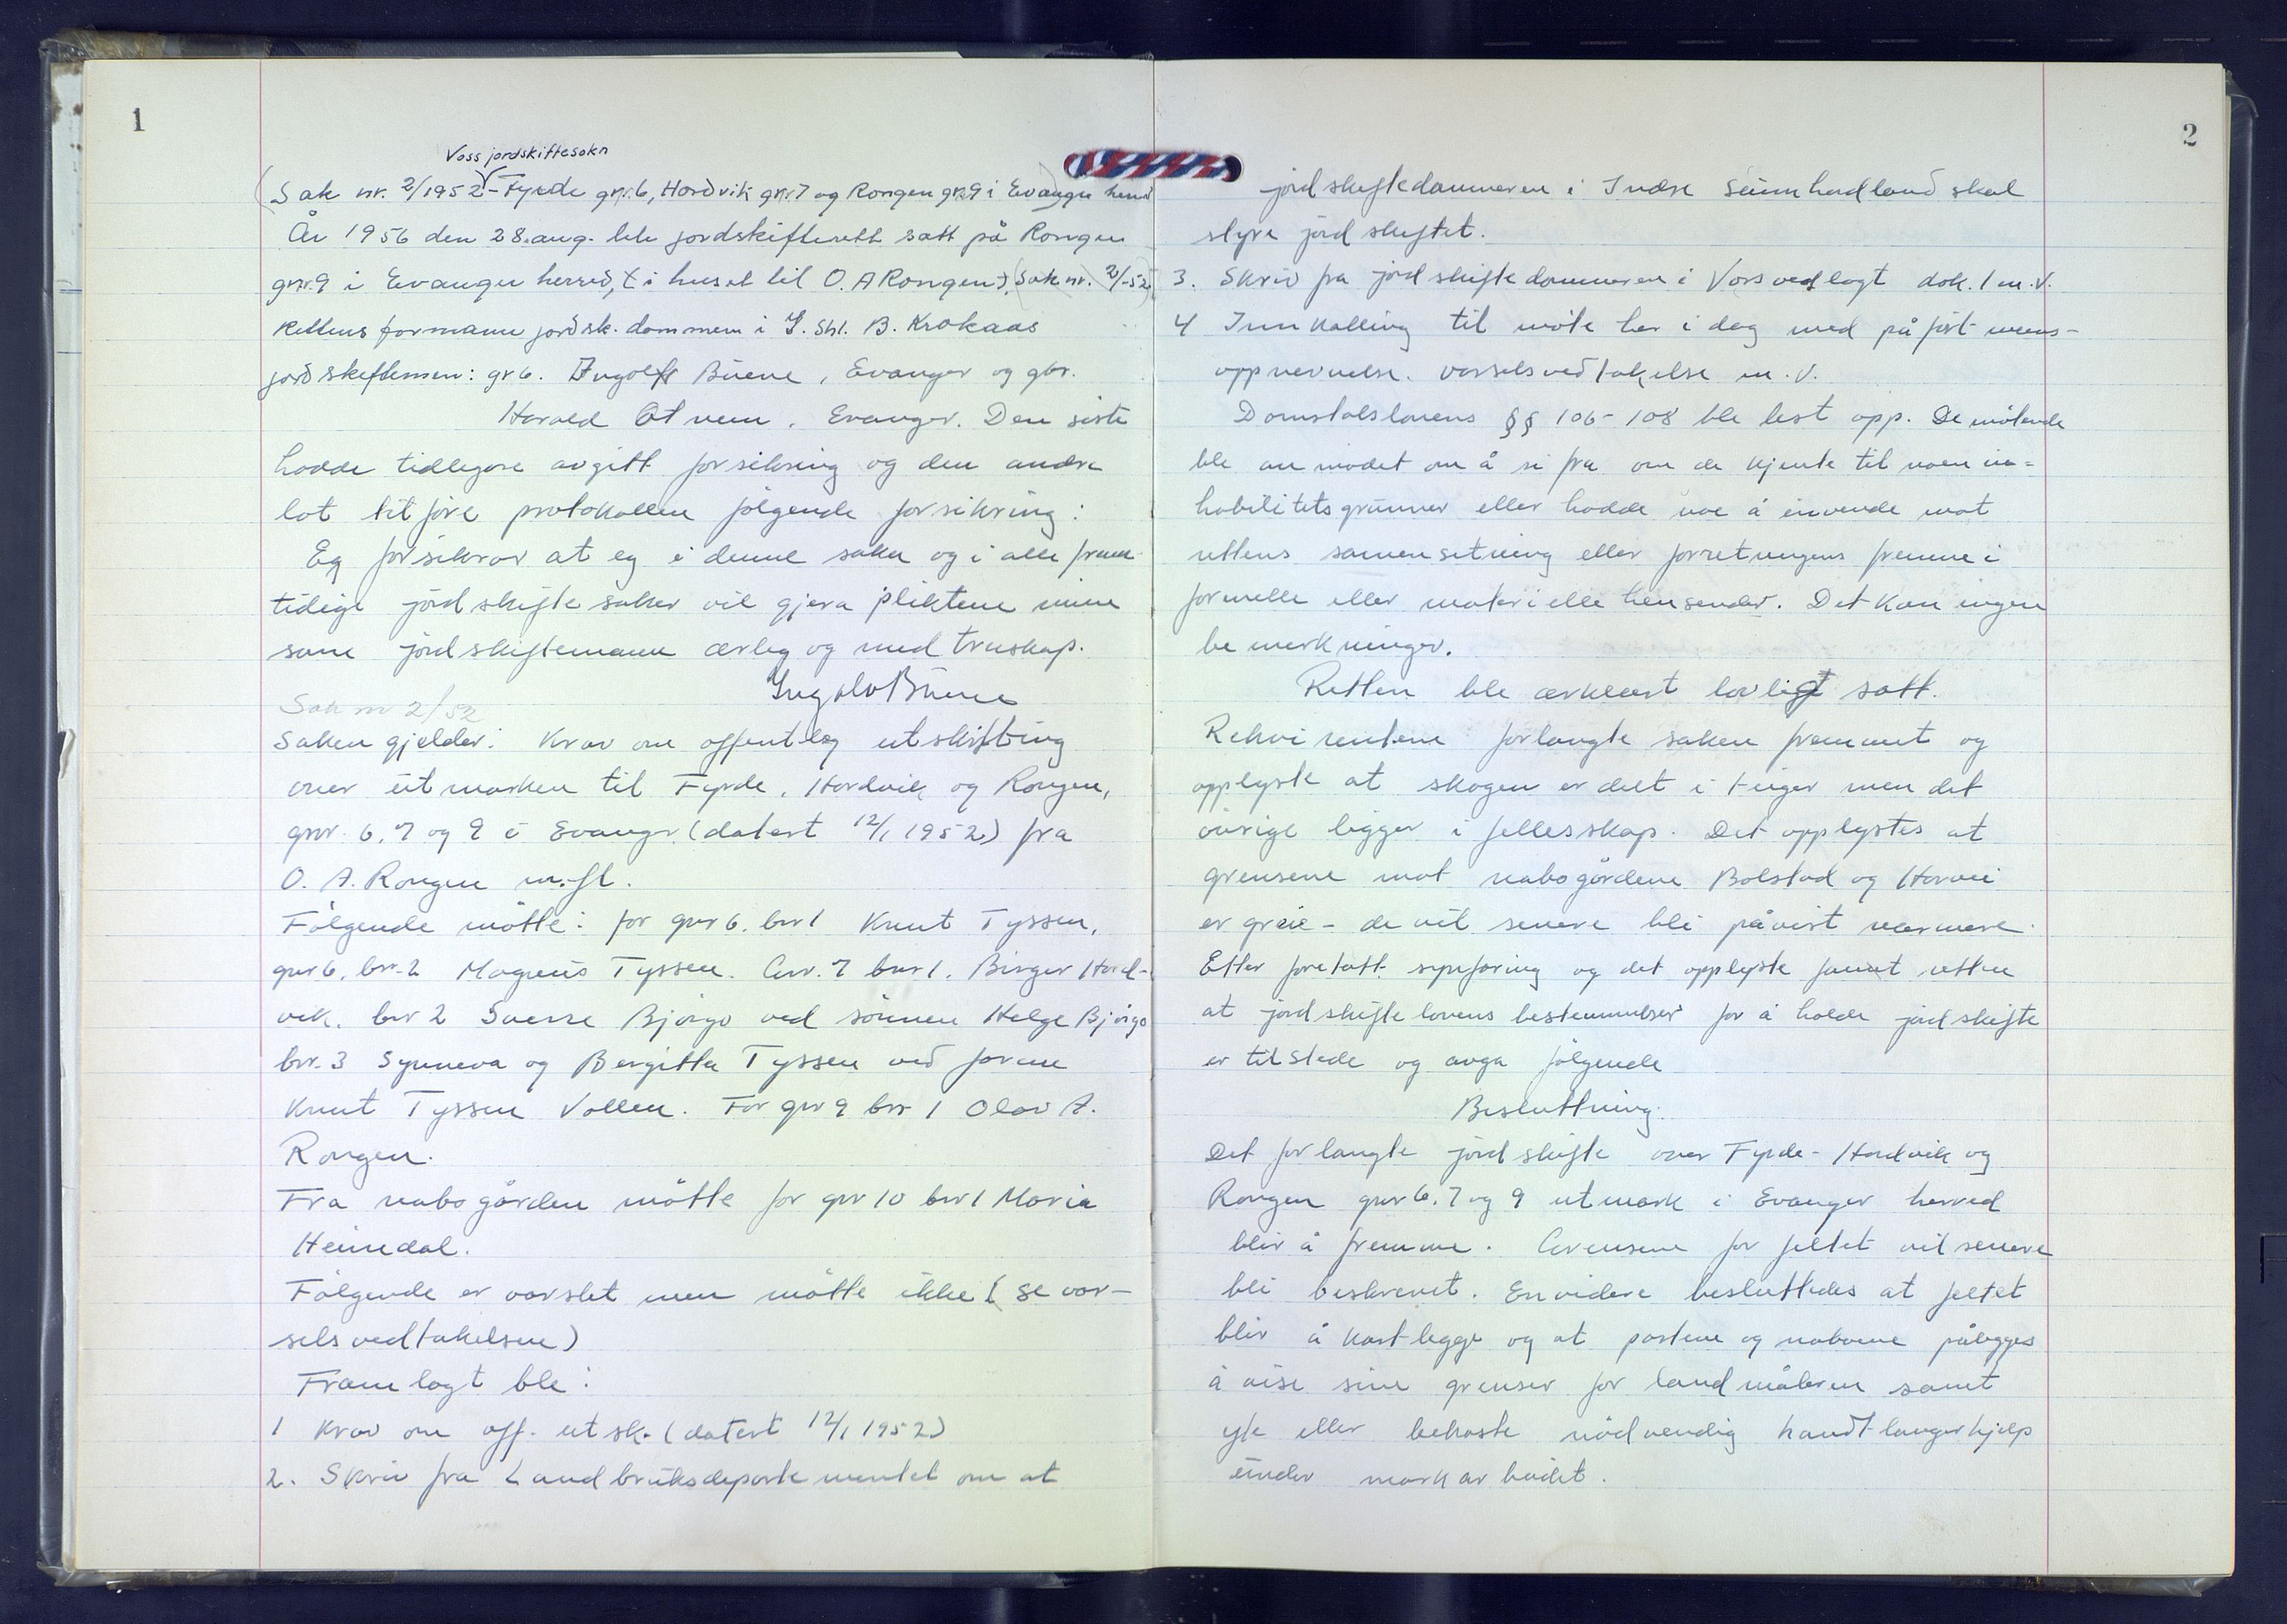 1
Voss jordskiftesokn
(Sak nr. 2/1952 - Fyrde gnr.6, Hordvik gnr.7 og Rongen gnr.9 i Evanger herred
År 1956 den 28. aug. ble jordskifterett satt på Rongen
gnr. 9 i Evanger herred, (i huset til O. A Rongen). (Sak nr. 2/-52)
Rettens formann jordsk. dommern i I. Shl. B. Krokaas
jordskiftemen: gr 6. Ingolf Buene, Evanger og gbr.
Harald Otnem, Evanger. Den siste
hadde tidlegare avgitt forsikring og den andre
lot tilføre protokollen følgende forsikring:
Eg forsikrar at eg i denne saka og i alle fram-
tidige jordskiftesaker vil gjera pliktene mine
som jordskiftemann ærleg og med truskap.
Ingolv Buene
Sak nr 2/52
Saken gjelder: Krav om offentleg utskifting
over utmarken til Fyrde, Hordvik og Rongen,
gnr. 6, 7 og 9 i Evanger (datert 12/1 1952) fra
O. A. Rongen m.fl.
Følgende møtte: for gnr 6. bnr 1 Knut Tyssen,
gnr 6. bnr. 2 Magnus Tyssen. Gnr. 7 bnr 1. Birger Hord-
vik. bnr 2 Sverre Bjørgo ved sønnen Helge Bjørgo
bnr. 3 Synneva og Bergitta Tyssen ved
Knut Tyssen Vollen. For gnr 9 bnr 1 Olav A.
Rongen.
Fra nabogården møtte for gnr 10 bnr 1 Maria
Heimdal.
Følgende er varslet men møtte ikke (se var-
selsvedtakelsen)
Framlagt ble:
1 Krav om off. utsk. (datert 12/1 1952)
2. Skriv fra Landbruksdepartementet om at
2
jordskiftedommeren i Indre Sunnhordland skal
styre jordskiftet.
3. Skriv fra jordskiftedommeren i Voss vedlagt dok. 1 m.v.
4 Innkalling til møte her i dag med påført menns-
oppnevnelse. varselsvedtakelse m.v.
Domstolslovens §§ 106-108 ble lest opp. De møtende
ble anmodet om å si fra om de kjente til noen in=
habilitetsgrunner eller hadde noe å invende mot
rettens samensetning eller forretningens fremme i
formelle eller materielle hensender. Det kom ingen
bemerkninger.
Retten ble erklært lovligt satt.
Rekvirentene forlangte saken fremmet og
opplyste at skogen er delt i teiger men det
øvrige ligger i fellesskap. Det opplystes at
grensene mot nabogårdene Bolstad og Horvei
er greie - de vil senere bli påvist nærmere.
Etter foretatt synfaring og det opplyste fannt retten
at jordskiftelovens bestemmelser for å holde jordskifte
er tilstede og avga følgende
Besluttning.
Det forlangte jordskifte over Fyrde - Hordvik og
Rongen gnr 6. 7 og 9 utmark i Evanger herred
blir å fremme. Grensene for feltet vil senere
bli beskrevet. Envidere besluttedes at feltet
blir å kartlegge og at partene og naboene pålegges
å vise sine grenser for landmåleren samt
yte eller bekoste nødvendig handtlangerhjelp
under markarbeidet.